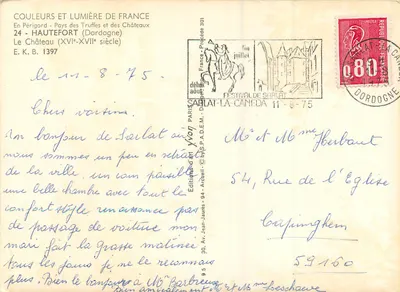 COULEURS ET LUMIÈRE DE FRANCE
En Périgord - Pays des Truffes et des Châteaux
24 - HAUTEFORT (Dordogne)
Le Château (XVIᵉ-XVIIᵉ siècle)
E. K. B. 1397
le 11-8-75
Chers voisins.
Un bonjour de Sarlat où
nous sommes un peu en retrait
de la ville, un coin paisible
une belle chambre avec tout le
confort style renaissance pas
de passage de voiture mon
mari fait la grasse matinée
tous les jours je ne le reconnais
plus. Bien le bonjour à
Mr et Mme
Editions d'art yvon PARIS
FESTIVAL DE SARLAT
SARLAT-LA-CANEDA 11-8-75
0,80
DORDOGNE
Mr et Mme Herbaut
54, Rue de l'Eglise
Capinghem
59160